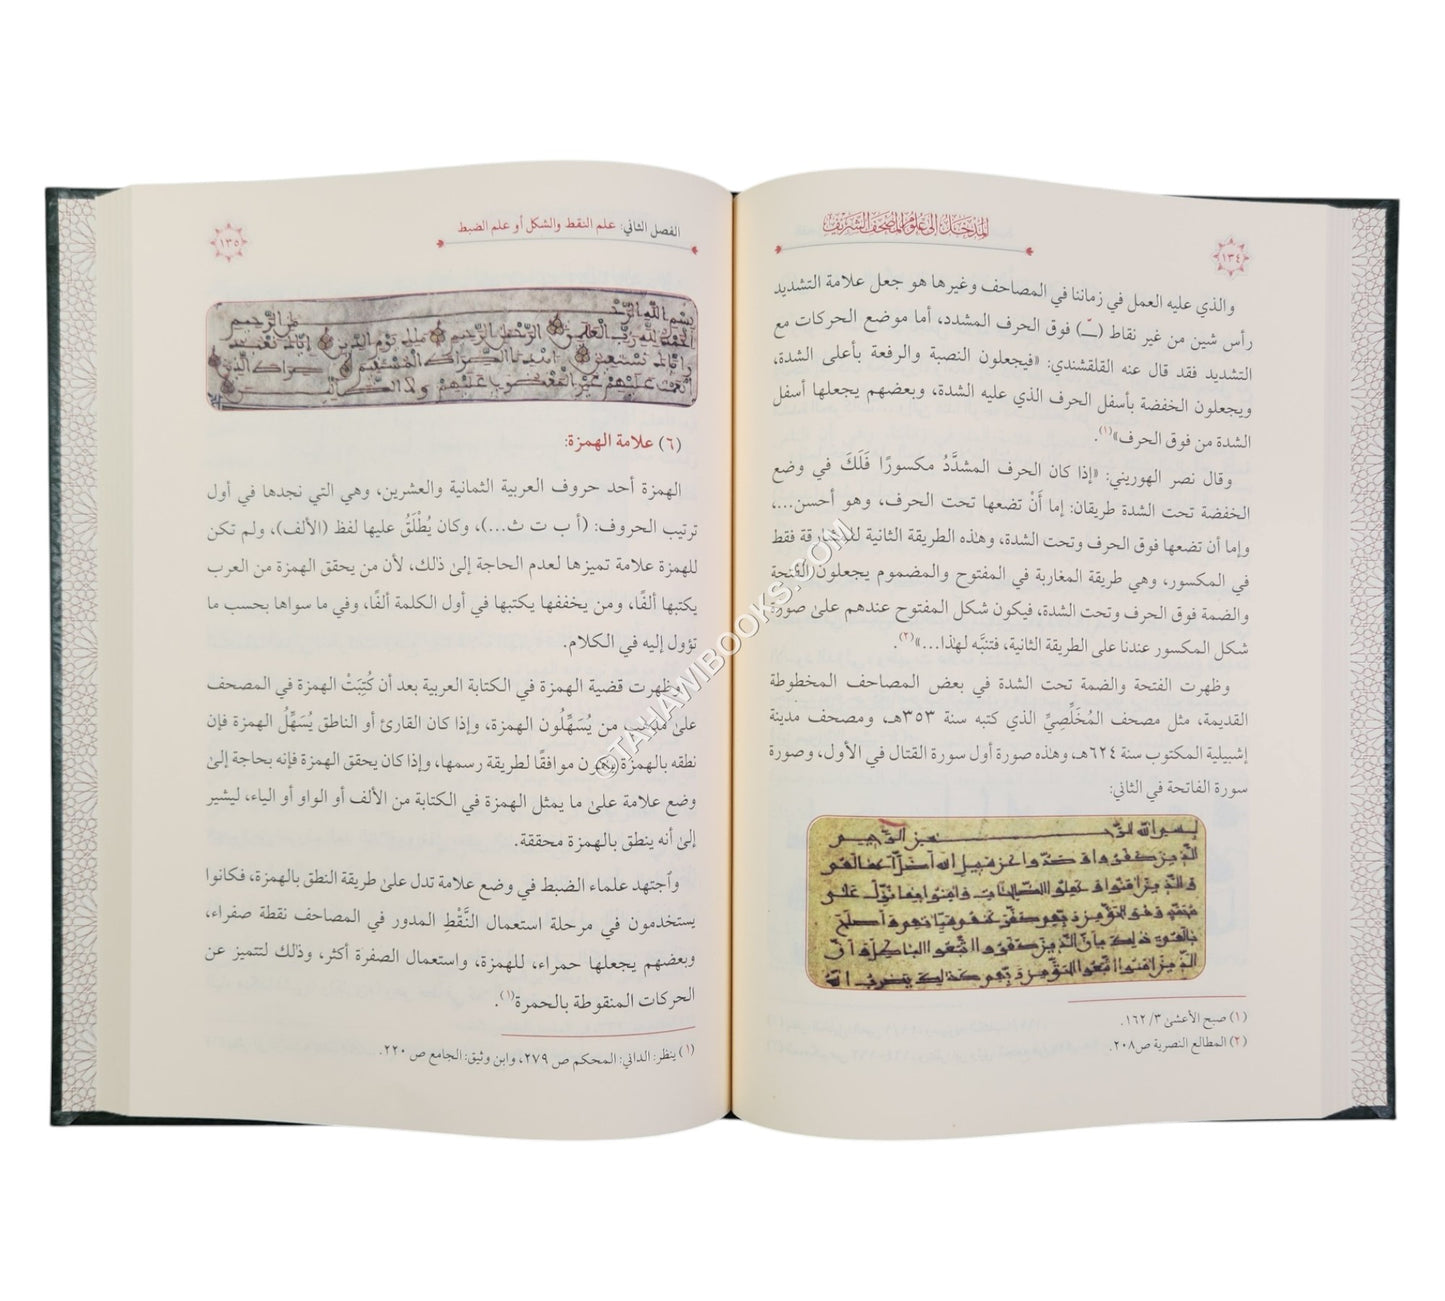 المدخل إلى علوم المصحف الشريف
١٣٤
والذي عليه العمل في زماننا في المصاحف وغيرها هو جعل علامة التشديد
رأس شين من غير نقاط (ـّ) فوق الحرف المشدد، أما موضع الحركات مع
التشديد فقد قال عنه القلقشندي: «فيجعلون النصبة والرفعة بأعلى الشدة،
ويجعلون الخفضة بأسفل الحرف الذي عليه الشدة، وبعضهم يجعلها أسفل
الشدة من فوق الحرف»(١).
وقال نصر الهوريني: «إذا كان الحرف المشدَّدُ مكسورًا فَلَكَ في وضع
الخفضة تحت الشدة طريقان: إما أَنْ تضعها تحت الحرف، وهو أحسن...،
وإما أن تضعها فوق الحرف وتحت الشدة، وهٰذه الطريقة الثانية للمشارقة فقط
في المكسور، وهي طريقة المغاربة في المفتوح والمضموم يجعلون الفتحة
والضمة فوق الحرف وتحت الشدة، فيكون شكل المفتوح عندهم علىٰ صورة
شكل المكسور عندنا على الطريقة الثانية، فتنبَّه لهٰذا...»(٢).
وظهرت الفتحة والضمة تحت الشدة في بعض المصاحف المخطوطة
القديمة، مثل مصحف المُخَلِّصِيِّ الذي كتبه سنة ٣٥٣هـ، ومصحف مدينة
إشبيلية المكتوب سنة ٦٢٤هـ، وهٰذه صورة أول سورة القتال في الأول، وصورة
سورة الفاتحة في الثاني:
بسم الله الرحمن الرحيم
الذين كفروا وصدوا عن سبيل الله أضل أعمالهم
والذين امنوا وعملوا الصالحات وامنوا بما نزل على
محمد وهو الحق من ربهم كفر عنهم سياتهم وأصلح
بالهم ذلك بأن الذين كفروا اتبعوا الباطل وأن
الذين امنوا اتبعوا الحق من ربهم كذلك يضرب الله
(١) صبح الأعشىٰ ٣/ ١٦٢.
(٢) المطالع النصرية ص٢٠٨.
الفصل الثاني: علم النقط والشكل أو علم الضبط
١٣٥
بسم الله الرحمن الرحيم
الحمد لله رب العالمين الرحمن الرحيم ملك يوم الدين إياك نعبد
وإياك نستعين اهدنا الصراط المستقيم صراط الذين
أنعمت عليهم غير المغضوب عليهم ولا الضالين
(٦) علامة الهمزة:
الهمزة أحد حروف العربية الثمانية والعشرين، وهي التي نجدها في أول
ترتيب الحروف: (أ ب ت ث...)، وكان يُطْلَقُ عليها لفظ (الألف)، ولم تكن
للهمزة علامة تميزها لعدم الحاجة إلىٰ ذلك، لأن من يحقق الهمزة من العرب
يكتبها ألفًا، ومن يخففها يكتبها في أول الكلمة ألفًا، وفي ما سواها بحسب ما
تؤول إليه في الكلام.
وظهرت قضية الهمزة في الكتابة العربية بعد أن كُتِبَتْ الهمزة في المصحف
علىٰ مذهب من يُسَهِّلُون الهمزة، وإذا كان القارئ أو الناطق يُسَهِّلُ الهمزة فإن
نطقه بالهمزة يكون موافقًا لطريقة رسمها، وإذا كان يحقق الهمزة فإنه بحاجة إلىٰ
وضع علامة علىٰ ما يمثل الهمزة في الكتابة من الألف أو الواو أو الياء، ليشير
إلىٰ أنه ينطق بالهمزة محققة.
واجتهد علماء الضبط في وضع علامة تدل علىٰ طريقة النطق بالهمزة، فكانوا
يستخدمون في مرحلة استعمال النَّقْطِ المدور في المصاحف نقطة صفراء،
وبعضهم يجعلها حمراء، للهمزة، واستعمال الصفرة أكثر، وذٰلك لتتميز عن
الحركات المنقوطة بالحمرة(١).
(١) ينظر: الداني: المحكم ص ٢٧٩، وابن وثيق: الجامع ص ٢٢٠.
©TAHAWIBOOKS.COM